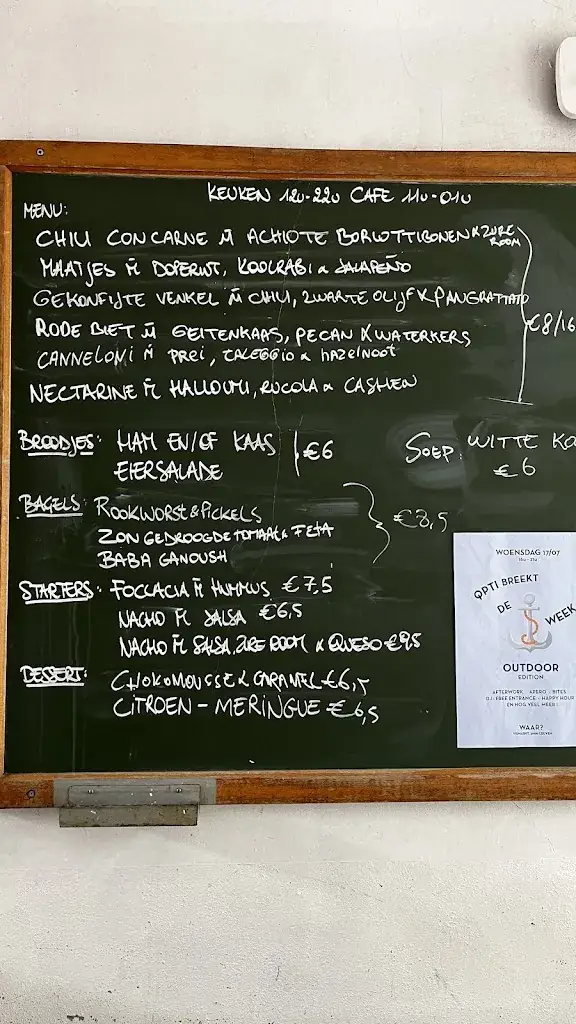 KEUKEN 12u-22u CAFE 11u-01u
MENU:
CHILI CON CARNE M̄ ACHIOTE BORLOTTIBONEN & ZURE ROOM
MAATJES M̄ DOPERWT, KOOLRABI & JALAPEÑO
GEKONFIJTE VENKEL M̄ CHILI, ZWARTE OLIJF & PANGRATTATO
€8/16
RODE BIET M̄ GEITENKAAS, PECAN & WATERKERS
CANNELONI M̄ PREI, TALEGGIO & HAZELNOOT
NECTARINE M̄ HALLOUMI, RUCOLA & CASHEW
BROODJES: HAM EN/OF KAAS
EIERSALADE
€6
SOEP: WITTE KO
€6
BAGELS: ROOKWORST & PICKELS
ZONGEDROOGDE TOMAAT & FETA
BABA GANOUSH
€8,5
STARTERS: FOCCACIA M̄ HUMMUS €7,5
NACHO M̄ SALSA €6,5
NACHO M̄ SALSA, ZURE ROOM & QUESO €9,5
DESSERT: CHOKOMOUSSE & CARAMEL €6,5
CITROEN - MERINGUE €6,5
WOENSDAG 17/07
QPTI BREEKT
DE WEEK
OUTDOOR
EDITION
AFTERWORK - APERO - BITES
DJ - FREE ENTRANCE - HAPPY HOUR
EN NOG VEEL MEER!
WAAR?